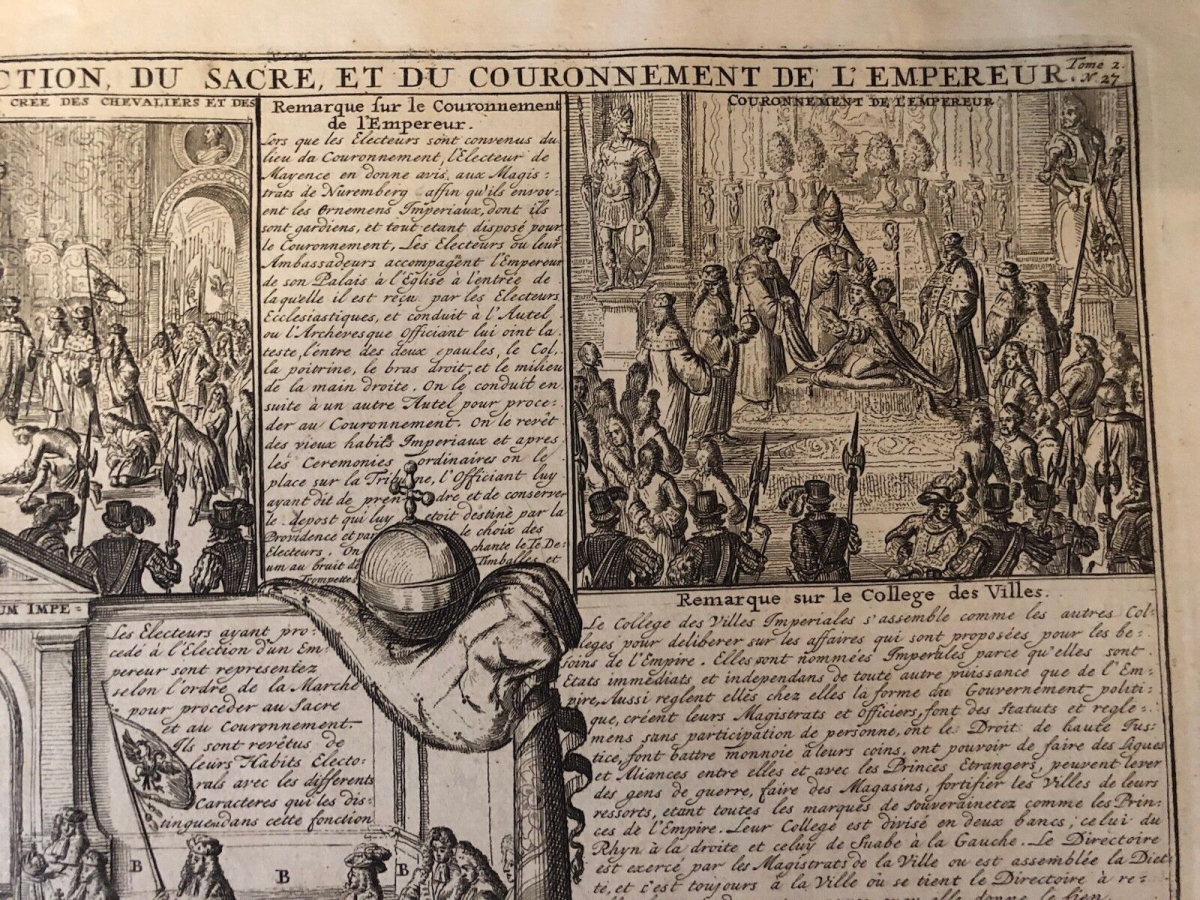 CTION, DU SACRE, ET DU COURONNEMENT DE L'EMPEREUR.
Tome 2.
N. 27
CREE DES CHEVALIERS ET DES
Remarque sur le Couronnement
de l'Empereur.
Lors que les Electeurs sont convenus du
lieu du Couronnement, l'Electeur de
Mayence en donne avis aux Magis-
trats de Nuremberg affin qu'ils envoy-
ent les Ornemens Imperiaux, dont ils
sont gardiens, et tout etant disposé pour
le Couronnement, Les Electeurs ou leur
Ambassadeurs accompagent l'Empereur
de son Palais à l'Eglise à l'entrée de
laquelle il est reçu par les Electeurs
Ecclesiastiques, et conduit à l'Autel
ou l'Archevesque Officiant lui oint la
teste, l'entre des deux epaules, le Col,
la poitrine, le bras droit, et le milieu
de la main droite. On le conduit en
suite à un autre Autel pour proce-
der au Couronnement. On le revêt
des vieux habits Imperiaux et apres
les Ceremonies ordinaires on le
place sur la Tribune, l'Officiant luy
ayant dit de prendre et de conserver
le depost qui luy etoit destiné par la
Providence et par le choix des
Electeurs. On chante le Te De-
um au bruit des Timballes et
Trompettes
COURONNEMENT DE L'EMPEREUR
UM IMPE=
Les Electeurs ayant pro-
cedé à l'Election d'un Em-
pereur sont representez
selon l'ordre de la Marche
pour proceder au Sacre
et au Couronnement
Ils sont revêtus de
leurs Habits Electo-
rals avec les differents
Caracteres qui les dis-
tinguent dans cette fonction
B
B
B
Remarque sur le College des Villes.
Le College des Villes Imperiales s'assemble comme les autres Col-
leges pour deliberer sur les affaires qui sont proposées pour les be-
soins de l'Empire. Elles sont nommées Imperales parce qu'elles sont
Etats immediats et independans de toute autre puissance que de l'Em-
pire, Aussi reglent elles chez elles la forme du Gouvernement politi-
que, créent leurs Magistrats et Officiers, font des Statuts et regle-
mens sans participation de personne, ont le Droit de haute Jus-
tice, font battre monnoie à leurs coins, ont pouvoir de faire des Ligues
et Aliances entre elles et avec les Princes Etrangers, peuvent lever
des gens de guerre, faire des Magasins, fortifier les Villes de leurs
ressorts, etant toutes les marques de souverainetez comme les Prin-
ces de l'Empire. Leur College est divisé en deux bancs; celui du
Rhyn à la droite et celuy de Suabe à la Gauche. Le Directoire
est exercé par les Magistrats de la Ville ou est assemblée la Diet-
te, et c'est toujours à la Ville où se tient le Directoire à re-